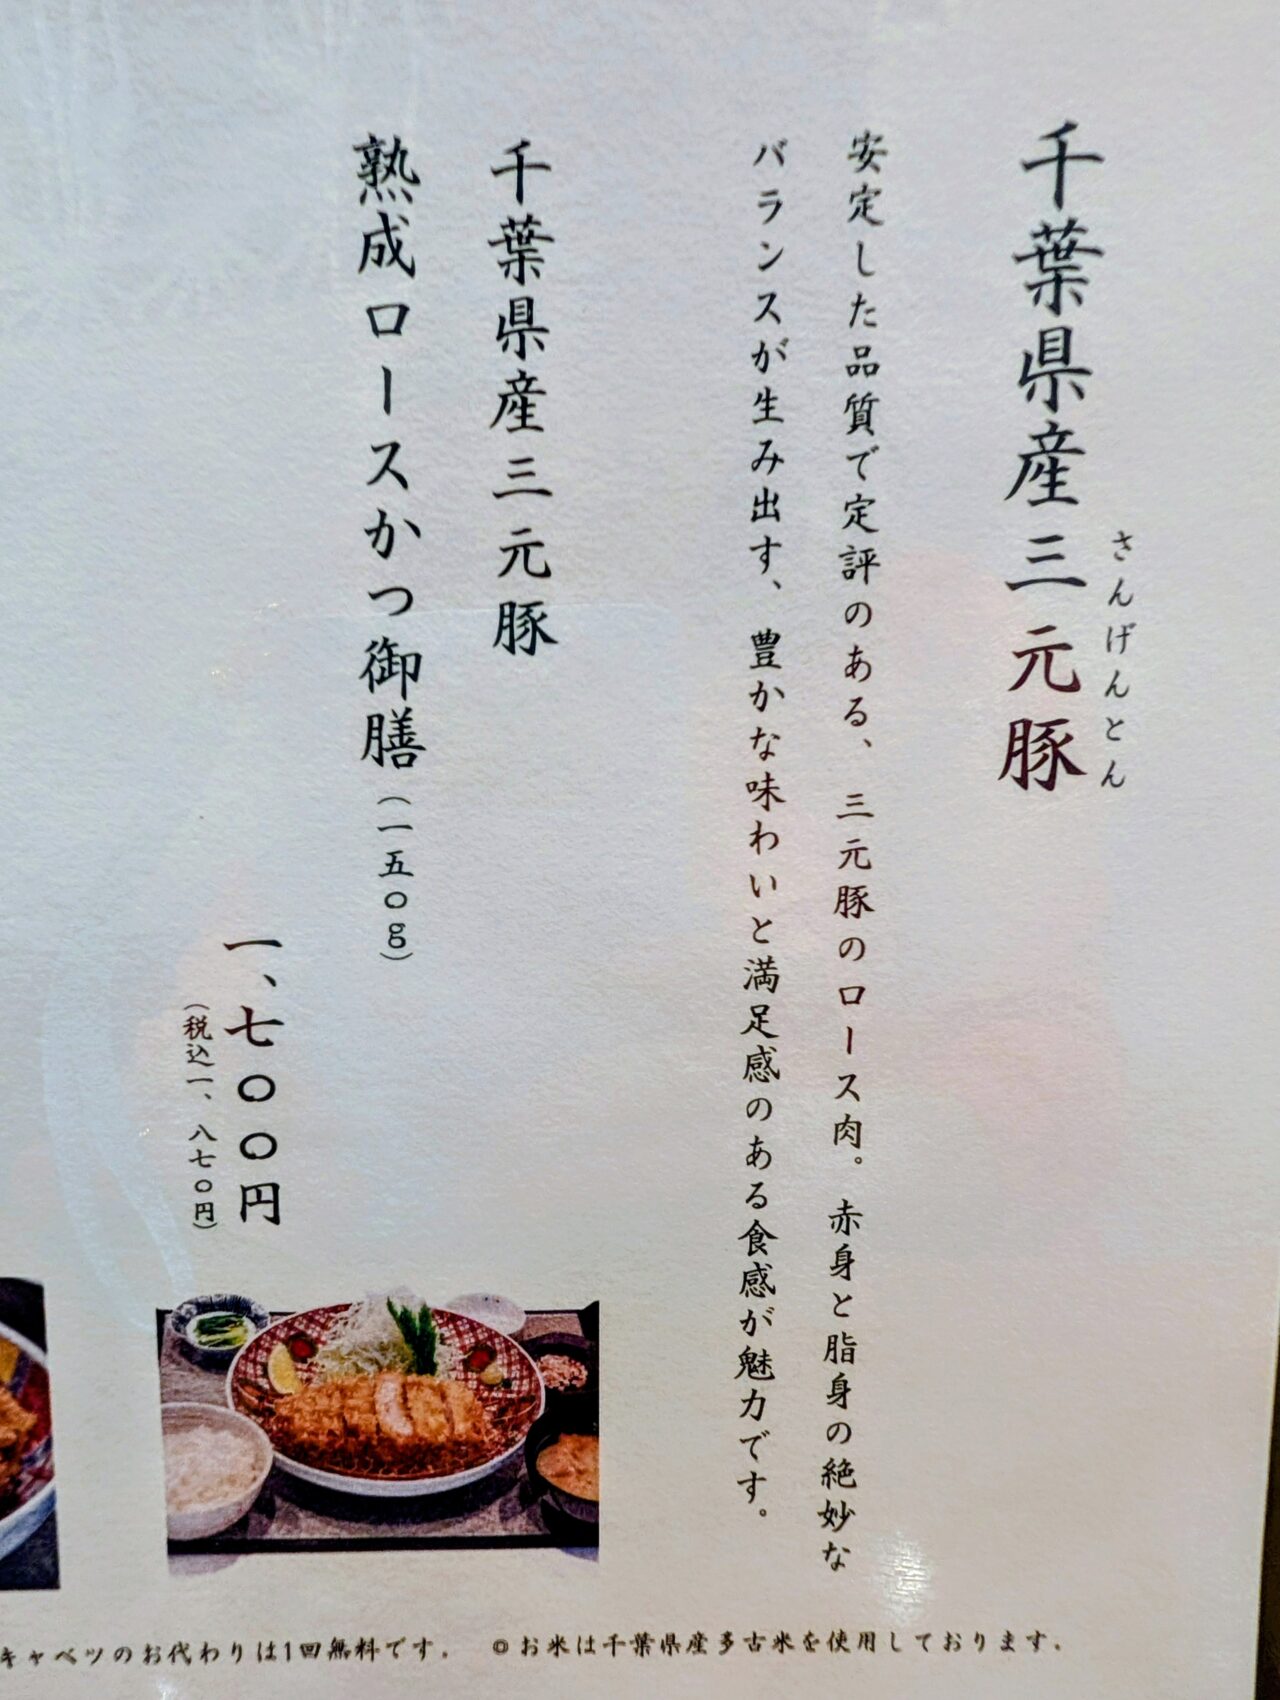 千葉県産三元豚
さんげんとん
安定した品質で定評のある、三元豚のロース肉。赤身と脂身の絶妙な
バランスが生み出す、豊かな味わいと満足感のある食感が魅力です。
千葉県産三元豚
熟成ロースかつ御膳（一五〇g）
一、七〇〇円
（税込一、八七〇円）
キャベツのお代わりは1回無料です。 ◎お米は千葉県産多古米を使用しております。